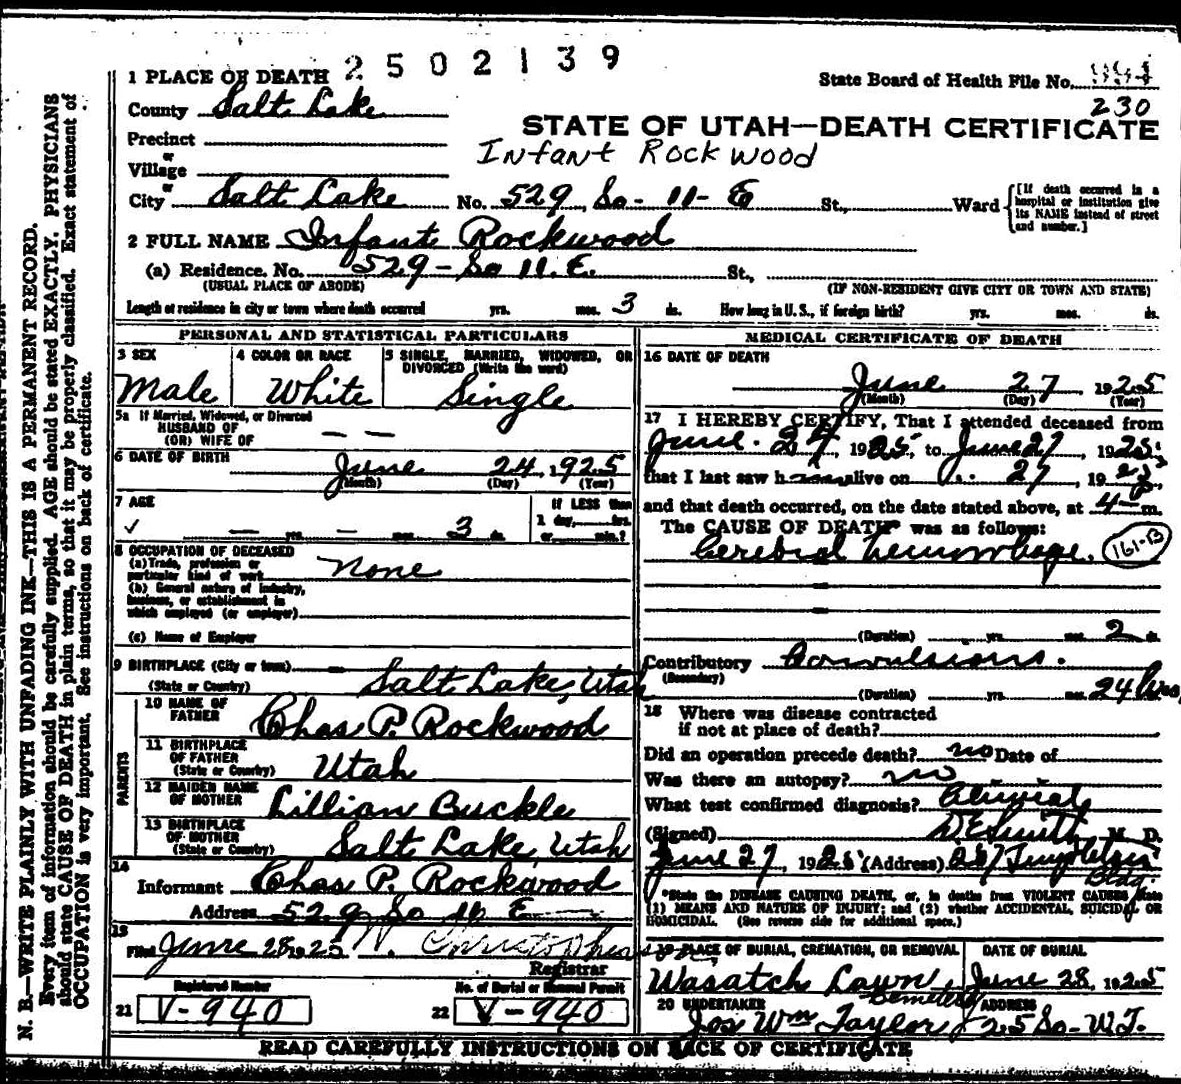 2502139
1 PLACE OF DEATH
State Board of Health File No.
230
County Salt Lake
STATE OF UTAH—DEATH CERTIFICATE
Precinct
Infant Rockwood
or
Village
or
City Salt Lake No. 529 So- 11- E St., Ward [If death occurred in a hospital or institution give its NAME instead of street and number.]
2 FULL NAME Infant Rockwood
(a) Residence. No. 529 - So 11. E. St.,
(USUAL PLACE OF ABODE) (IF NON-RESIDENT GIVE CITY OR TOWN AND STATE)
Length of residence in city or town where death occurred yrs. mos. 3 ds. How long in U. S., if foreign birth? yrs. mos. ds.
PERSONAL AND STATISTICAL PARTICULARS
3 SEX
Male
4 COLOR OR RACE
White
5 SINGLE, MARRIED, WIDOWED, OR
DIVORCED (Write the word)
Single
5a If Married, Widowed, or Divorced
HUSBAND OF
(OR) WIFE OF — —
6 DATE OF BIRTH June 24, 1925
(Month) (Day) (Year)
7 AGE
✓ — yrs. — mos. 3 ds.
If LESS than
1 day, hrs.
or min.?
8 OCCUPATION OF DECEASED
(a) Trade, profession or
particular kind of work none
(b) General nature of industry,
business, or establishment in
which employed (or employer)
(c) Name of Employer
9 BIRTHPLACE (City or town)
(State or Country) Salt Lake, Utah
PARENTS
10 NAME OF
FATHER Chas P. Rockwood
11 BIRTHPLACE
OF FATHER
(State or Country) Utah
12 MAIDEN NAME
OF MOTHER Lillian Buckle
13 BIRTHPLACE
OF MOTHER
(State or Country) Salt Lake, Utah
14
Informant Chas P. Rockwood
Address 529 So 11 E
15
Filed June 28, 1925
Registrar
Registered Number
21 V-940
No. of Burial or Removal Permit
22 V-940
MEDICAL CERTIFICATE OF DEATH
16 DATE OF DEATH
June 27, 1925
(Month) (Day) (Year)
17 I HEREBY CERTIFY, That I attended deceased from
June. 24, 1925, to June 27, 1925;
that I last saw h alive on 27, 192
and that death occurred, on the date stated above, at 4— m.
The CAUSE OF DEATH* was as follows:
Cerebral hemorrhage. 161-B
(Duration) yrs. mos. 2 ds.
Contributory Convulsions.
(Secondary)
(Duration) yrs. mos. 24 hrs
18 Where was disease contracted
if not at place of death?
Did an operation precede death? no Date of
Was there an autopsy? no
What test confirmed diagnosis? Clinical
(Signed) D E Smith, M. D.
June 27, 1925 (Address)
Bldg.
*State the DISEASE CAUSING DEATH, or, in deaths from VIOLENT CAUSES, state
(1) MEANS AND NATURE OF INJURY; and (2) whether ACCIDENTAL, SUICIDAL OR
HOMICIDAL. (See reverse side for additional space.)
19 PLACE OF BURIAL, CREMATION, OR REMOVAL
Wasatch Lawn
Cemetery
DATE OF BURIAL
June 28, 1925
20 UNDERTAKER
Jos Wm Taylor
ADDRESS
25 So- W.T.
READ CAREFULLY INSTRUCTIONS ON BACK OF CERTIFICATE
N. B.—WRITE PLAINLY WITH UNFADING INK—THIS IS A PERMANENT RECORD.
Every item of information should be carefully supplied. AGE should be stated EXACTLY. PHYSICIANS
should state CAUSE OF DEATH in plain terms, so that it may be properly classified. Exact statement of
OCCUPATION is very important. See instructions on back of certificate.